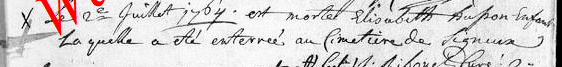 X Le 2e Juillet 1764. est morte Elisabeth Dupon Enfant
Laquelle a été enterreé au Cimetiere de Signeux